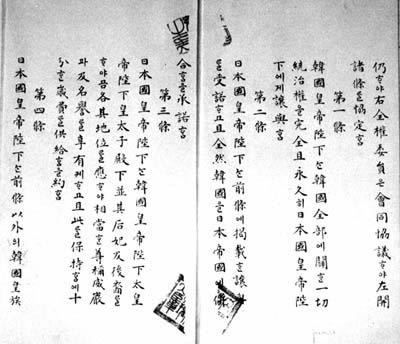 仍ᄒᆞ야右全權委員은會同協議ᄒᆞ야左開
諸條를協定홈
第一條
韓國皇帝陛下는韓國全部에關ᄒᆞᆫ一切
統治權을完全且永久히日本國皇帝陛
下에게讓與홈
第二條
日本國皇帝陛下는前條에揭載ᄒᆞᆫ讓
를受諾ᄒᆞ고且全然韓國을日本帝國에倂
合홈을承諾홈
第三條
日本國皇帝陛下는韓國皇帝陛下太皇
帝陛下皇太子殿下並其后妃及後裔로
ᄒᆞ야곰各其地位를應ᄒᆞ야相當ᄒᆞᆫ尊稱威嚴
과及名譽를享有케ᄒᆞ고且此를保持홈에十
分ᄒᆞᆫ歲費를供給홈을約홈
第四條
日本國皇帝陛下는前條以外의韓國皇族